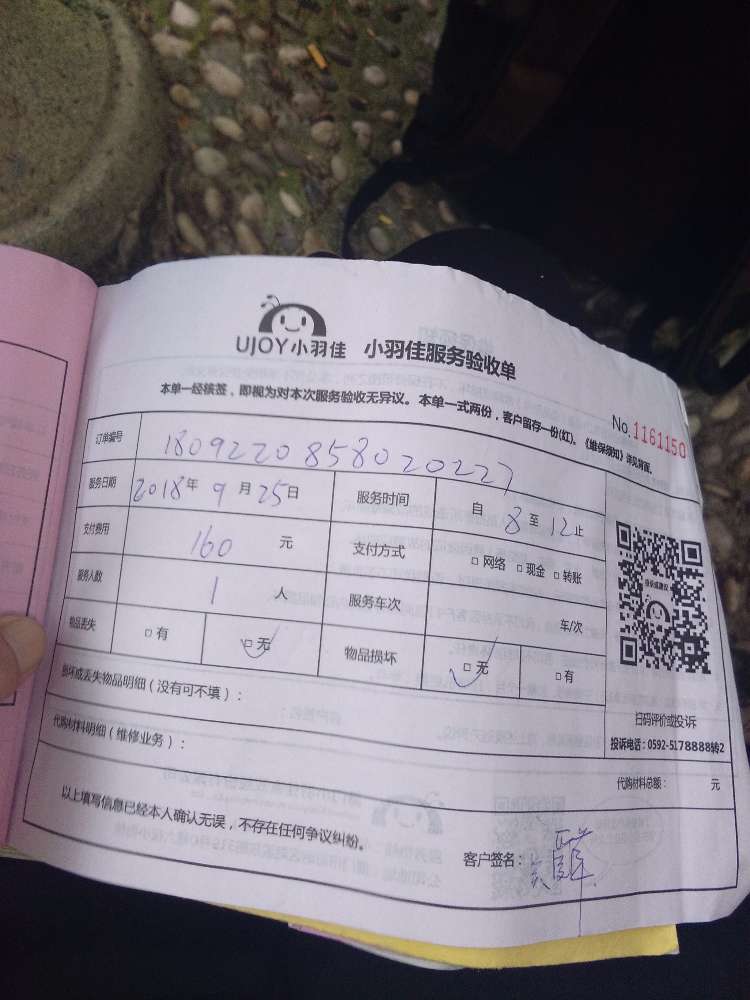 UJOY小羽佳 小羽佳服务验收单
本单一经核签,即视为对本次服务验收无异议。本单一式两份,客户留存一份(红)。《维保须知》详见背面。
No.1161150
订单编号 180922085802022​7
服务日期 2018年9月25日 服务时间 自8至12止
支付费用 160元 支付方式 □网络 □现金 □转账
服务人数 1人 服务车次 车/次
物品丢失 □有 □无 物品损坏 □无 □有
损坏或丢失物品明细(没有可不填):
扫码评价或投诉
投诉电话:0592-5178888转2
代购材料明细(维修业务):
代购材料总额: 元
以上填写信息已经本人确认无误,不存在任何争议纠纷。
客户签名: